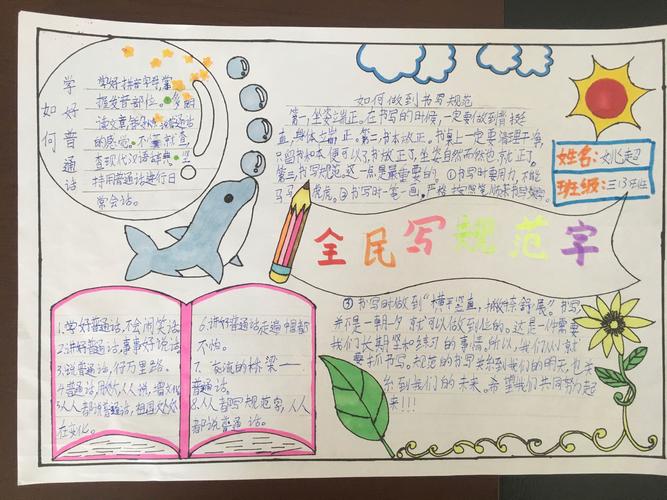 如何学好普通话
学好拼音字母掌
握发音部位。多朗
读文章
查现代汉语辞典。坚
持用普通话进行日
常会话。
如何做到书写规范
第一,坐姿端正。在书写的时候,一定要做到背挺
直,身体端正。第二,书本放正。书桌上一定要清理干净,
只留书和本便可以了,书放正了,坐姿自然而然也就正了。
第三,书写规范。这一点是最重要的。①书写时要用力,不能
马马虎虎。②书写时一笔一画。严格按照笔顺来书写
姓名:
班级:三13班
全民写规范字
1.学好普通话,不会闹笑话
2.讲好普通话,事事好说话
3.说普通话,
4.普通话,
5.人人都说普通话,祖国
6.讲好普通话走遍中国都
不怕。
7、交流的桥梁——
普通话。
8.人人都写规范字,人人
都说普通话。
③书写时做到"横平竖直,撇捺舒展"。书写
并不是一朝一夕就可以做到位的。这是一件需要
我们长期坚持练习的事情。所以,我们从小就
要抓书写。规范的书写关系到我们的明天,也关
系到我们的未来。希望我们共同努力起
来!!!